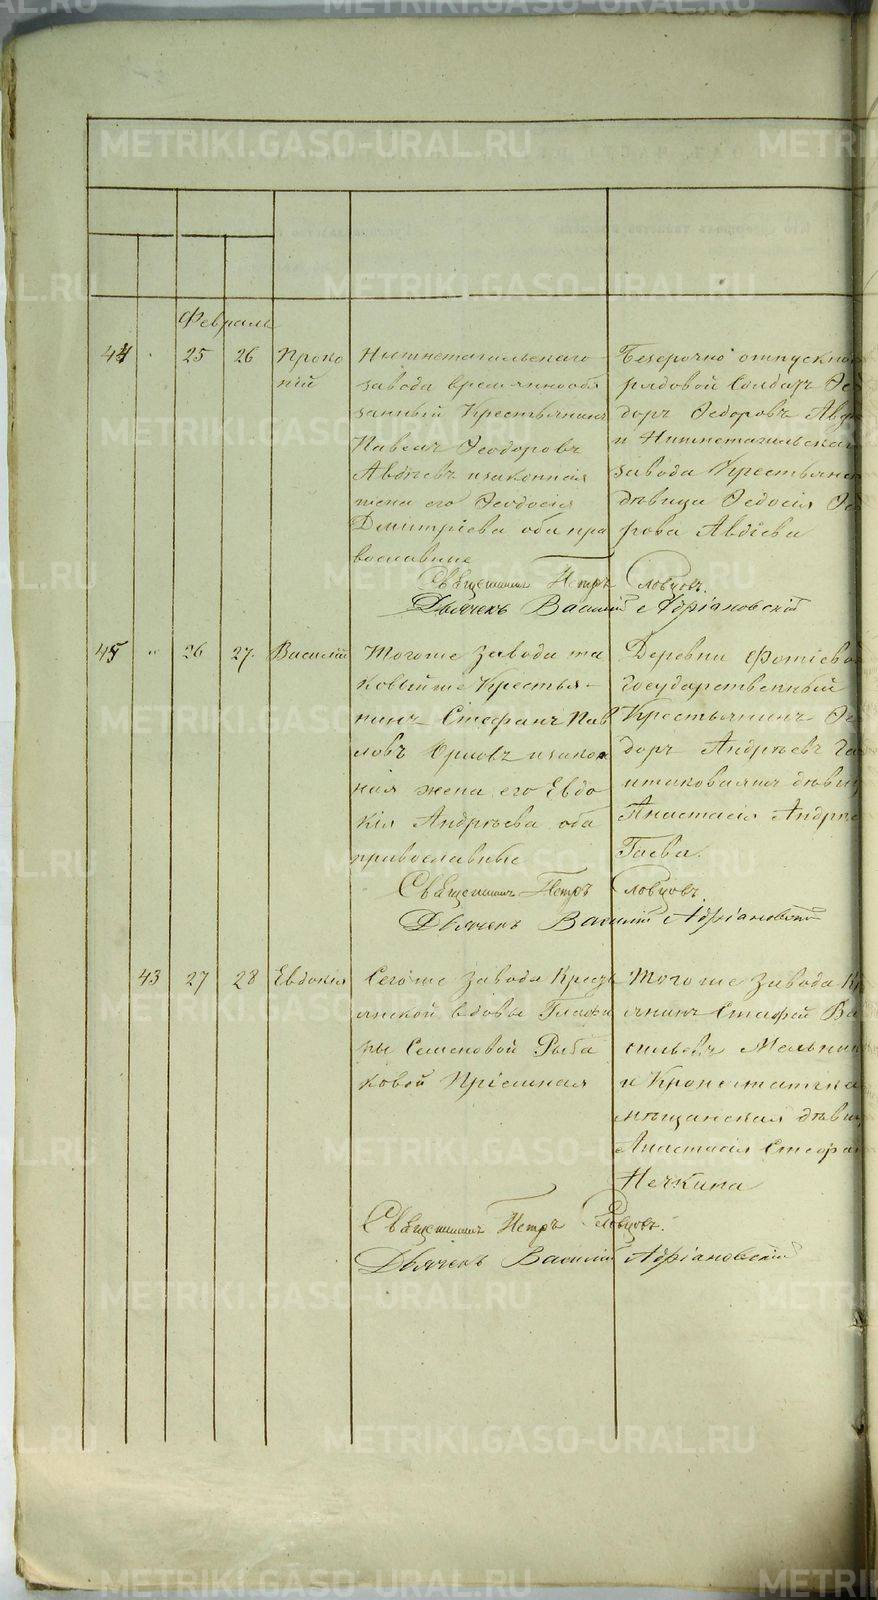 Февраль
44 " 25 26 Проко
пій
Нижнетагильскаго
завода временнообя
занный Крестьянинъ
Павелъ Ѳеодоровъ
Авдѣевъ и законная
жена его Ѳеодосія
Дмитріева оба пра
вославные
Безсрочно отпускной
рядовой Солдатъ Ѳео
доръ Ѳедоровъ Авдѣ
и Нижнетагильскаго
завода Крестьянск
дѣвица Ѳедосія Ѳед
рова Авдіева
Священникъ Петръ Словцовъ.
Дьячекъ Василій Адріановскій
45 " 26 27 Василій
Тогоже завода та
ковыйже Крестья-
нинъ Стефанъ Пав
ловъ Орловъ и закон
ная жена его Евдо
кія Андрѣева оба
православные
Деревни Фотіевой
Государственный
Крестьянинъ Ѳе
доръ Андрѣевъ Га
и таковаяже дѣвиц
Анастасія Андрѣ
Гаева.
Священникъ Петръ Словцовъ.
Дьячекъ Василій Адріановскій
43 27 28 Евдокія
Сегоже завода Крест
янской вдовы Глафи
ры Семеновой Рыба
ковой Пріемная
Тогоже завода Кр
янинъ Стафей Ва
сильевъ Мельник
и Кронштатская
мѣщанская дѣвиц
Анастасія Стефан
Нечкина
Священникъ Петръ Словцовъ.
Дьячекъ Василій Адріановскій
METRIKI.GASO-URAL.RU